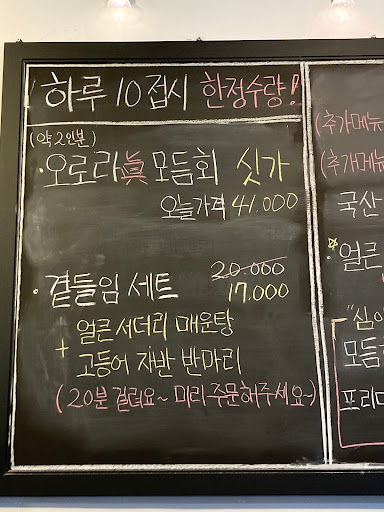 하루 10접시 한정수량!
(약 2인분)
·오로라眞 모듬회 싯가
오늘가격 41.000
·곁들임 세트 20.000
17.000
+ 얼큰 서더리 매운탕
고등어 자반 반마리
(20분 걸려요~ 미리 주문해주세요~)
(추가메뉴
(추가메뉴
국산
얼큰
"심야
모듬
프리미